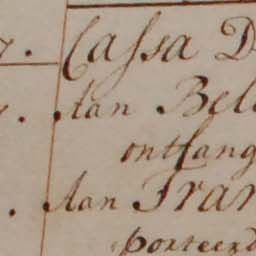 7. Cassa D
. Aan Bel
ontfang
. Aan Fran
porteerd